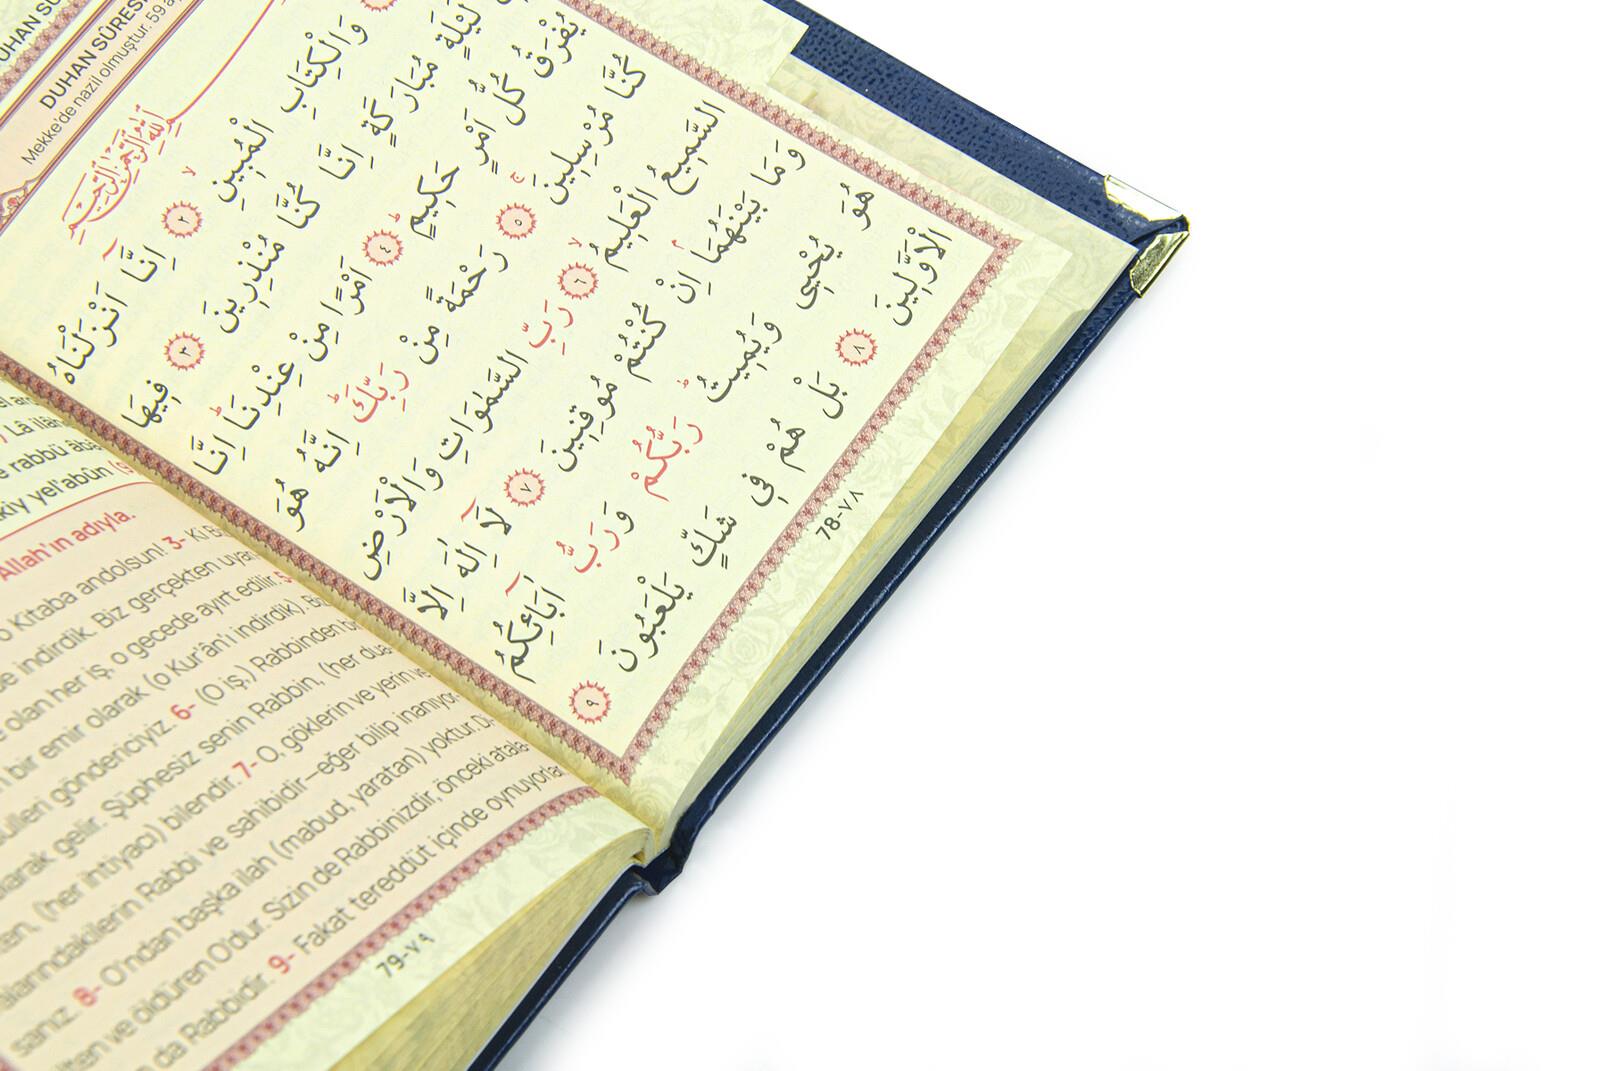 DUHAN SÛRESİ
Mekke'de nazil olmuştur. 59
بِسْمِ اللهِ الرَّحْمٰنِ الرَّحِيمِ
وَالْكِتَابِ الْمُبِينِ ﴿٢﴾ اِنَّٓا اَنْزَلْنَاهُ
لَيْلَةٍ مُبَارَكَةٍ اِنَّا كُنَّا مُنْذِرِينَ ﴿٣﴾ فِيهَا
يُفْرَقُ كُلُّ اَمْرٍ حَكِيمٍ ﴿٤﴾ اَمْرًا مِنْ عِنْدِنَا اِنَّا
كُنَّا مُرْسِلِينَ ﴿٥﴾ رَحْمَةً مِنْ رَبِّكَ اِنَّهُ هُوَ
السَّمِيعُ الْعَلِيمُ ﴿٦﴾ رَبِّ السَّمٰوَاتِ وَالْاَرْضِ
وَمَا بَيْنَهُمَا اِنْ كُنْتُمْ مُوقِنِينَ ﴿٧﴾ لَٓا اِلٰهَ اِلَّا
هُوَ يُحْيِى وَيُمِيتُ رَبُّكُمْ وَرَبُّ اٰبَٓائِكُمُ
الْاَوَّلِينَ ﴿٨﴾ بَلْ هُمْ فِى شَكٍّ يَلْعَبُونَ ﴿٩﴾
78-٧٨
Lâ ilâhe
rabbü âbâ
yel'abûn (9)
Allah'ın adıyla.
o Kitaba andolsun! 3- Ki B
indirdik. Biz gerçekten uyarı
olan her iş, o gecede ayırt edilir. 5-
bir emir olarak (o Kur'ân'ı indirdik). B
göndericiyiz. 6- (O iş,) Rabbinden b
olarak gelir. Şüphesiz senin Rabbin, (her dua
(her ihtiyacı) bilendir. 7- O, göklerin ve yerin ve
Rabbi ve sahibidir—eğer bilip inanıyor
sanız. 8- O'ndan başka ilah (mabud, yaratan) yoktur. Di
ve öldüren O'dur. Sizin de Rabbinizdir, önceki atala
da Rabbidir. 9- Fakat tereddüt içinde oynuyorlar
79-٧٩